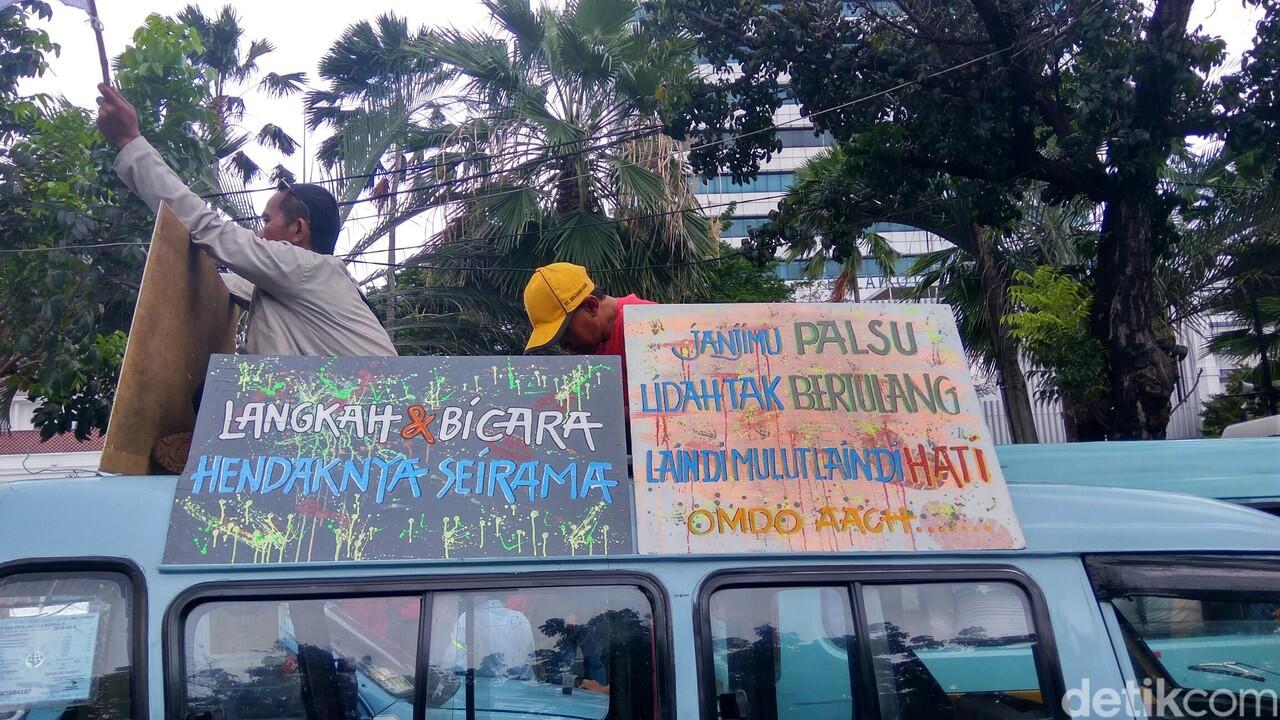 LANGKAH & BICARA
HENDAKNYA SEIRAMA
JANJIMU PALSU
LIDAH TAK BERTULANG
LAIN DI MULUT LAIN DI HATI
OMDO AACH.......
detikcom